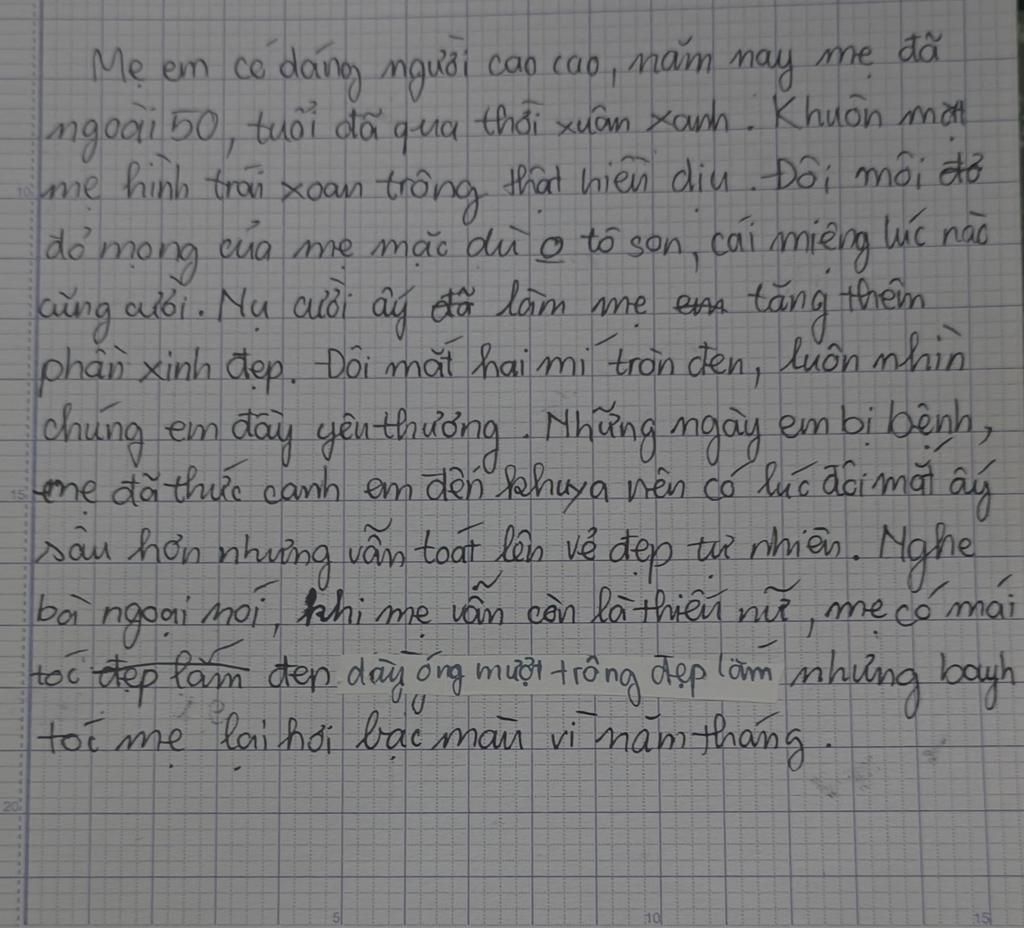 Mẹ em có dáng người cao cao, năm nay mẹ đã
ngoài 50, tuổi đã qua thời xuân xanh. Khuôn mặt
mẹ hình trái xoan trông thật hiền dịu. Đôi môi đỏ
đỏ mọng của mẹ mặc dù o tô son, cái miệng lúc nào
cũng cười. Nụ cười ấy đã làm mẹ em tăng thêm
phần xinh đẹp. Đôi mắt hai mí tròn đen, luôn nhìn
chúng em đầy yêu thương. Những ngày em bị bệnh,
mẹ đã thức canh em đến khuya nên có lúc đôi mắt ấy
sâu hơn nhưng vẫn toát lên vẻ đẹp tự nhiên. Nghe
bà ngoại nói, khi mẹ vẫn còn là thiếu nữ, mẹ có mái
tóc đẹp lắm đen dày óng mượt trông đẹp lắm nhưng bayh
tóc mẹ lại hơi bạc màu vì năm tháng.